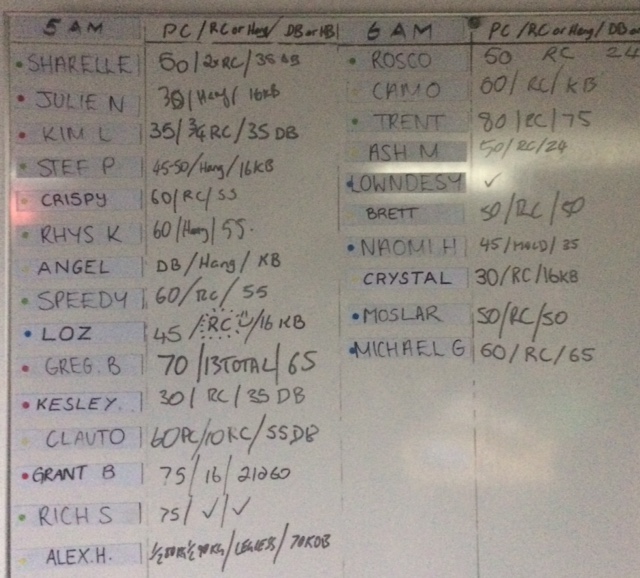 5 AM PC/RC or Hang/ DB or KB
SHARELLE 50/2xRC/35 KB
JULIE N 30/Hang/ 16KB
KIM L 35/ 3/4 RC/35 DB
STEF P 45-50/Hang/16KB
CRISPY 60/RC/55
RHYS K 60/Hang/55.
ANGEL DB/Hang/ KB
SPEEDY 60/RC/ 55
LOZ 45/RC/16 KB
GREG. B 70/13TOTAL/65
KESLEY. 30/ RC/35 DB
CLAUTO 60PC/10RC/55DB
GRANT B 75/16/
RICH S 75/✓/✓
ALEX.H. /LEGLESS/
6 AM PC/RC or Hang/ DB or
ROSCO 50 RC 24
CAMO 60/RC/KB
TRENT 80/RC/75
ASH M 50/RC/24
LOWNDESY ✓
BRETT 50/RC/50
NAOMI H 45/HOLD/35
CRYSTAL 30/RC/16KB
MOSLAR 50/RC/50
MICHAEL G 60/RC/65